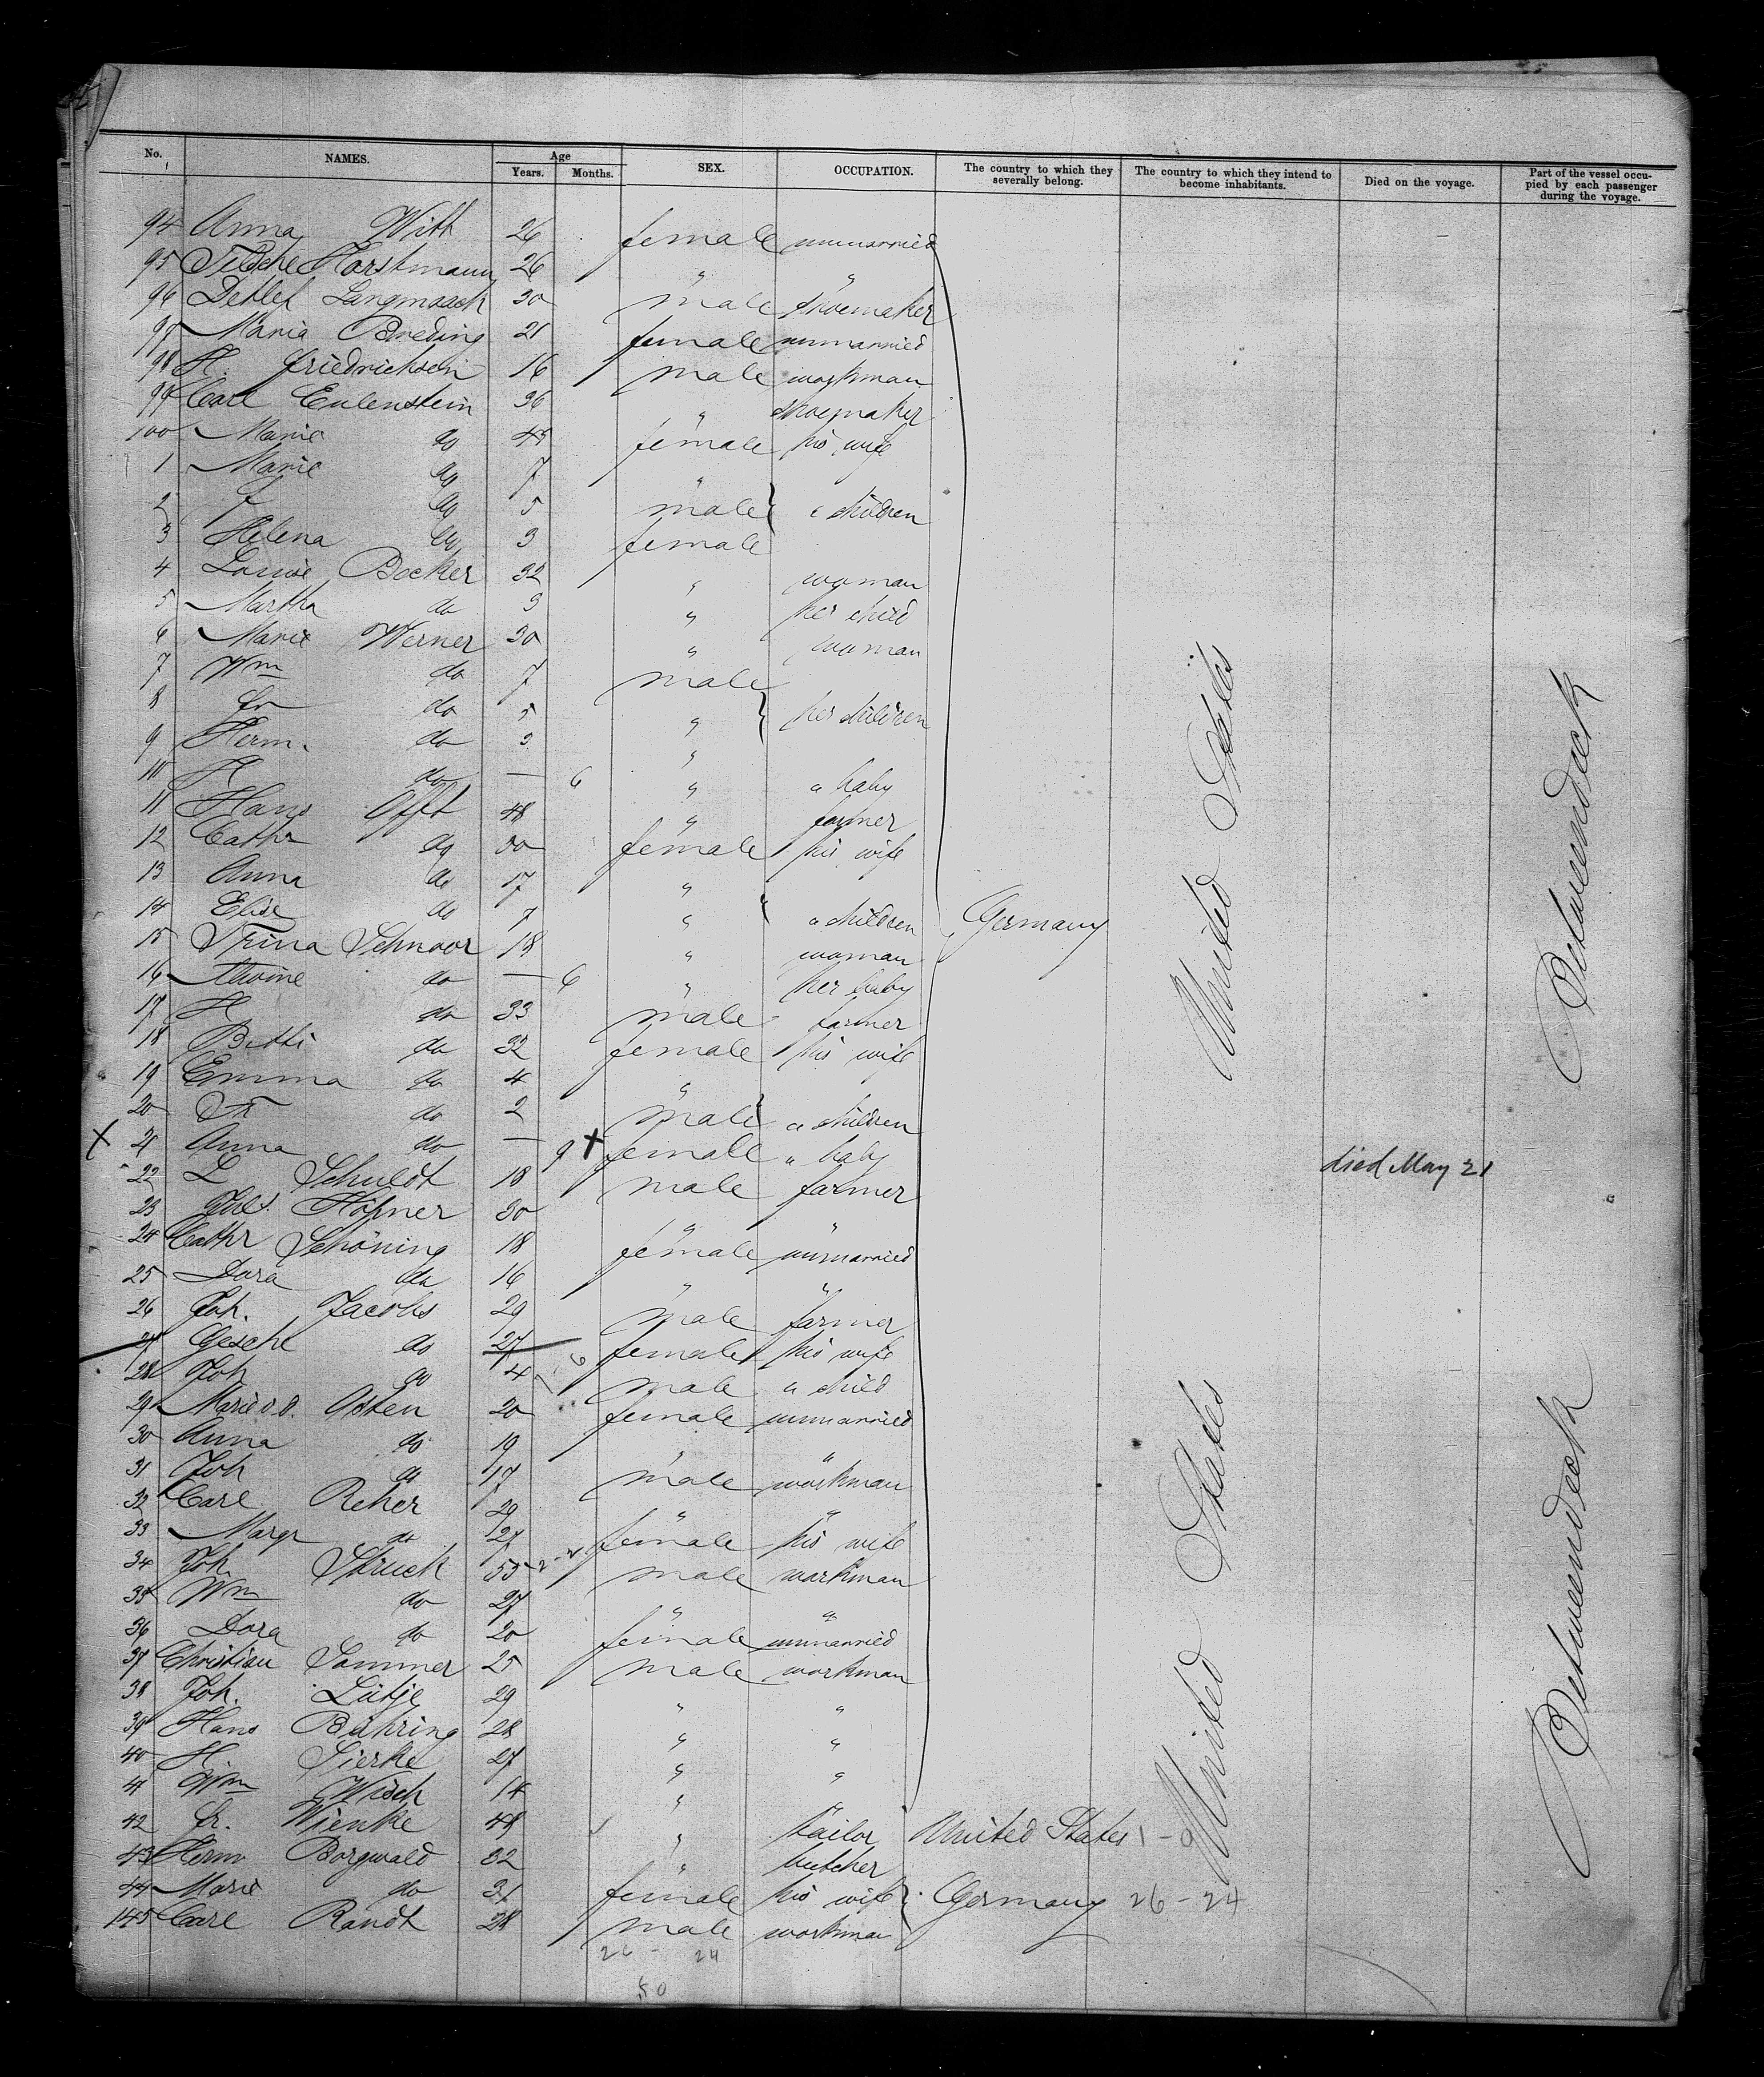 No. NAMES. Age Years. Months. SEX. OCCUPATION. The country to which they severally belong. The country to which they intend to become inhabitants. Died on the voyage. Part of the vessel occupied by each passenger during the voyage.
94 Anna Witt 26 female unmarried
95 Horstmann 26 " "
96 Detlef Langmaack 30 male shoemaker
97 Maria Breding 21 female unmarried
98 H. Friedrichsen 16 male workman
99 Carl Eulenstein 36 " shoemaker
100 Marie do 45 female his wife
1 Marie do 7 "
2 do 5 male " children
3 Helena do 3 female
4 Louise Becker 32 " woman
5 Martha do 3 " her child
6 Marie Werner 30 " woman
7 Wm do 7 male
8 Fr do 5 " her children
9 Herm. do 3 "
10 do — 6 " a baby
11 Hans Offt 48 " farmer
12 Cathr do 50 female his wife
13 Anna do 17 "
14 Elise do 7 " " children Germany
15 Trina Schnoor 18 " woman
16 do — 6 " her baby
17 H do 33 male farmer
18 Betti do 32 female his wife
19 Emma do 4 "
20 do 2 male " children
X 21 Anna do — 9 X female " baby died May 21
22 L Schuldt 18 male farmer
23 Höpner 30 " "
24 Cathr Schöning 18 female unmarried
25 Dora do 16 " "
26 Joh. Jacobs 29 male farmer
27 Gesche do 27 female his wife
28 Joh do 4 6 male " child
29 Marie v. d. Osten 20 female unmarried
30 Anna do 19 " "
31 Joh do 17 male workman
32 Carl Reher 29 " "
33 Margr do 27 female his wife
34 Joh. Struck 53 male workman
35 Wm do 27 " "
36 Dora do 20 female unmarried
37 Christian Sommer 25 male workman
38 Joh. Lütje 29 " "
39 Hans Bühring 28 " "
40 H. Sierke 27 " "
41 Wm Wisch 14 " "
42 Fr. Wienke 48 " tailor United States 1 - 0
43 Herm Borgwald 32 " butcher
44 Marie do 31 female his wife Germany 26 - 24
145 Carl Randt 28 male workman
26 - 24
50
United States
United States
Betweendeck
Betweendeck